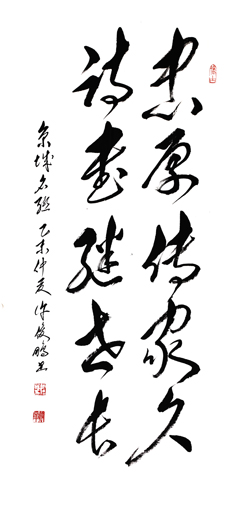 忠厚传家久
诗书继世长
乙未仲夏